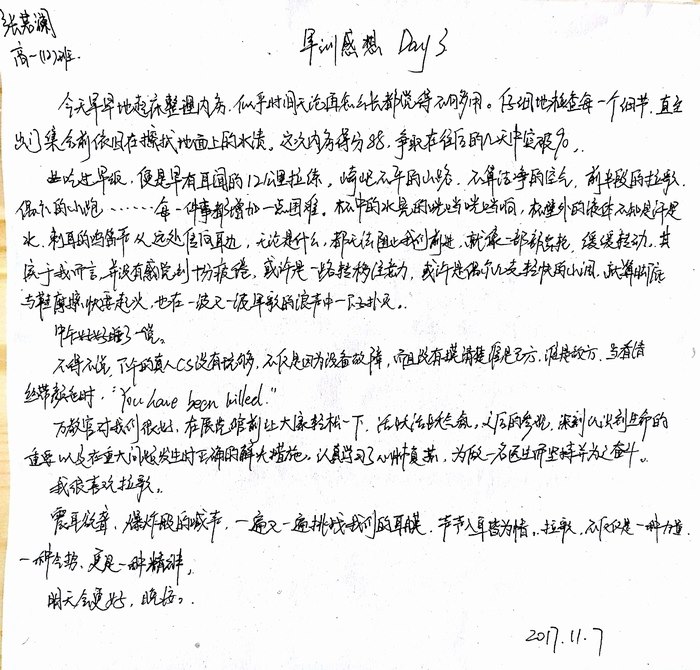 张若澜
高一(12)班.
军训感想 Day 3
今天早早地起床整理内务,似乎时间无论再怎么长都觉得不够用。仔细地检查每一个细节,直至
出门集合前依旧在擦拭地面上的水渍。这次内务得分88,争取在往后的几天中突破90。
吃过早饭,便是早有耳闻的12公里拉练。崎岖不平的山路,不算洁净的空气,前半段的拉歌,
偶尔的小跑……每一件事都增加一点困难。杯中的水晃的咣当咣当响,杯壁外的液体不知是汗是
水,刺耳的鸣笛声从远处传向耳边,无论是什么,都无法阻止我们前进,就像一部部齿轮,缓缓转动。其
实于我而言,并没有感觉到十分疲倦,或许是一路转移注意力,或许是偶尔几支轻快的小调,就算脚底
与鞋摩擦快要起火,也在一波又一波军歌的浪声中一下扑灭。
中午好好睡了一觉。
不得不说,下午的真人CS没有玩够,不仅是因为设备故障,而且没有摸清楚谁是己方,谁是敌方,当看清
丝带颜色时,"You have been killed."
万教官对我们很好,在展览馆前让大家轻松一下,活跃活跃气氛,之后的参观,深刻认识到生命的
重要以及在重大问题发生时正确的解决措施。认真学习了心肺复苏,为做一名医生而坚持并为之奋斗。
我很喜欢拉歌。
震耳欲聋、爆炸般的喊声,一遍又一遍挑战我们的耳膜,字字入耳皆为情。拉歌,不仅仅是一种力量,
一种气势,更是一种精神。
明天会更好,晚安。
2017.11.7